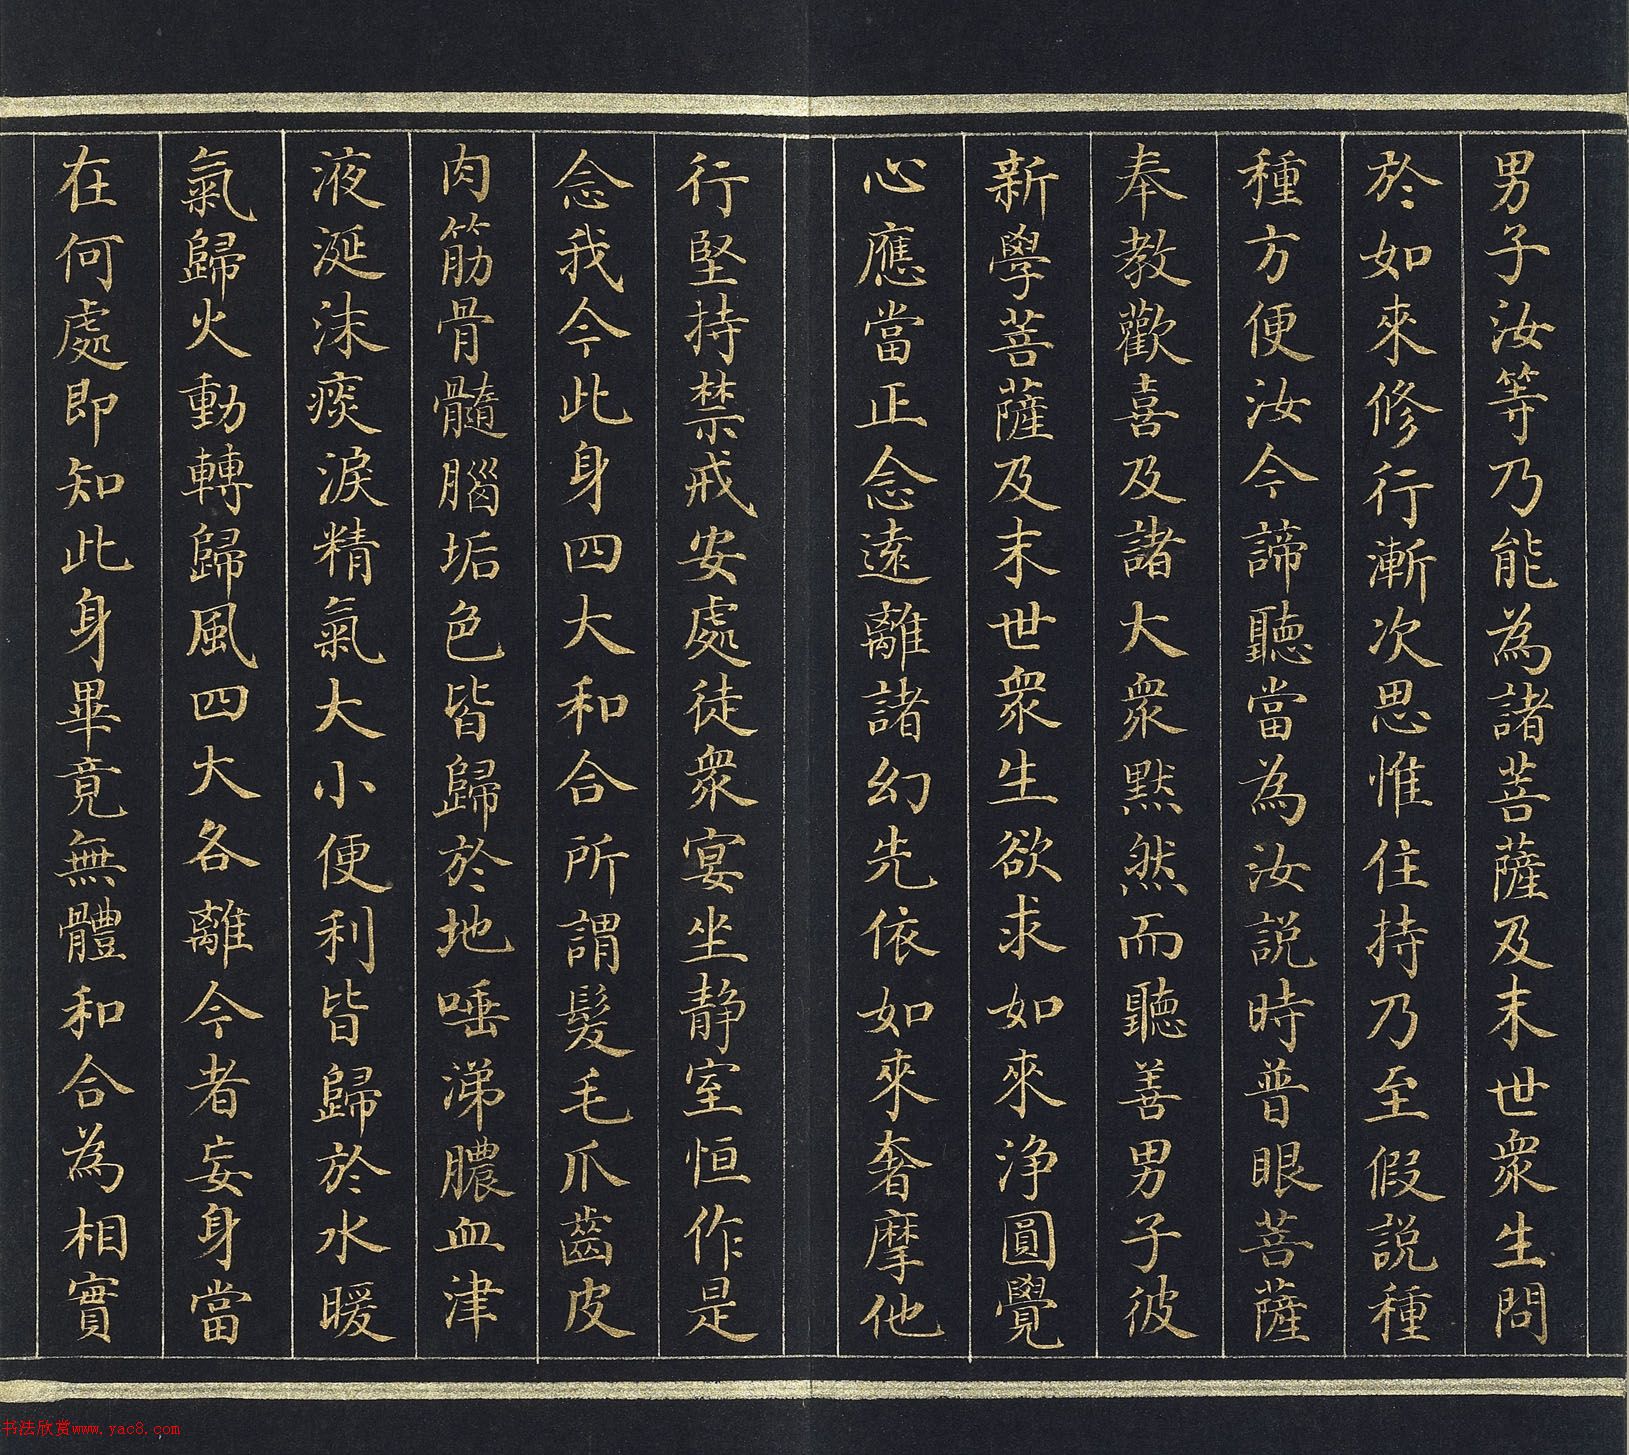 男子汝等乃能為諸菩薩及末世衆生問
於如來修行漸次思惟住持乃至假説種
種方便汝今諦聽當為汝説時普眼菩薩
奉教歡喜及諸大衆黙然而聽善男子彼
新學菩薩及末世衆生欲求如來淨圓覺
心應當正念遠離諸幻先依如來奢摩他
行堅持禁戒安處徒衆宴坐静室恒作是
念我今此身四大和合所謂髮毛爪齒皮
肉筋骨髓腦垢色皆歸於地唾涕膿血津
液涎沫痰淚精氣大小便利皆歸於水暖
氣歸火動轉歸風四大各離今者妄身當
在何處即知此身畢竟無體和合為相實
书法欣赏www.yac8.com